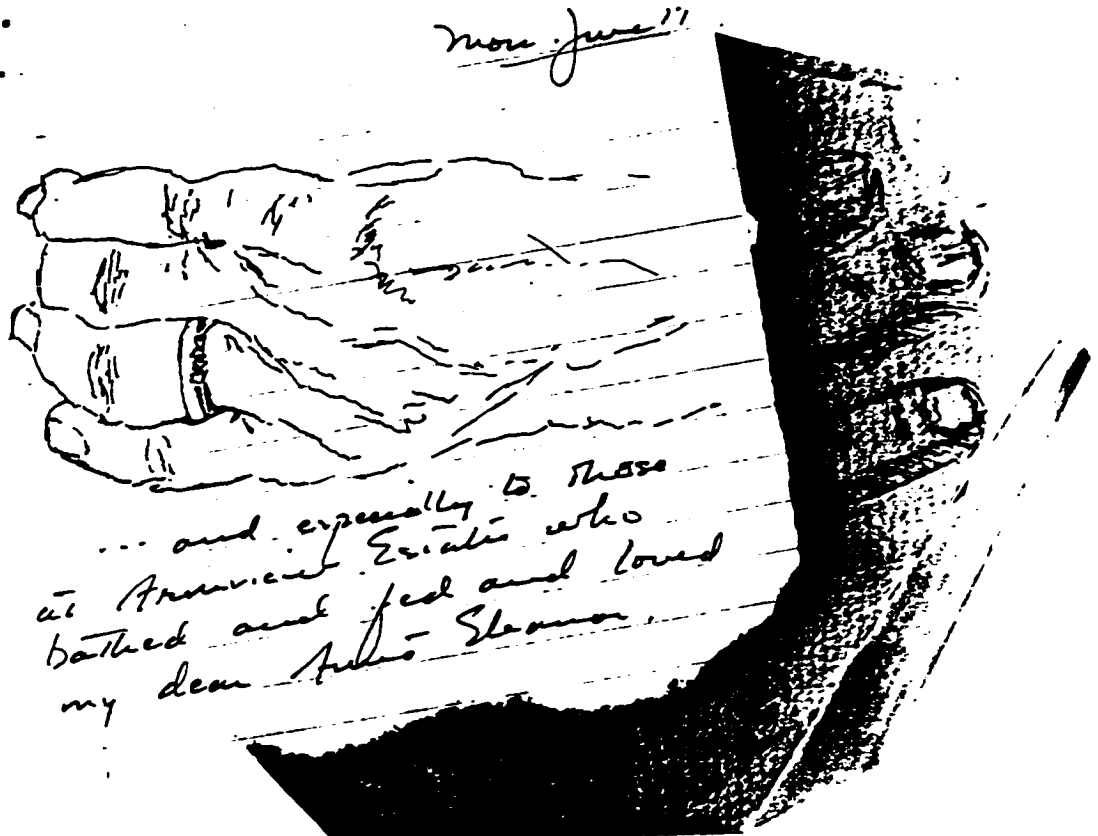 Mon. June 17
... and especially to those
at Armview Estates who
bathed and fed and loved
my dear Aunt Eleanor.